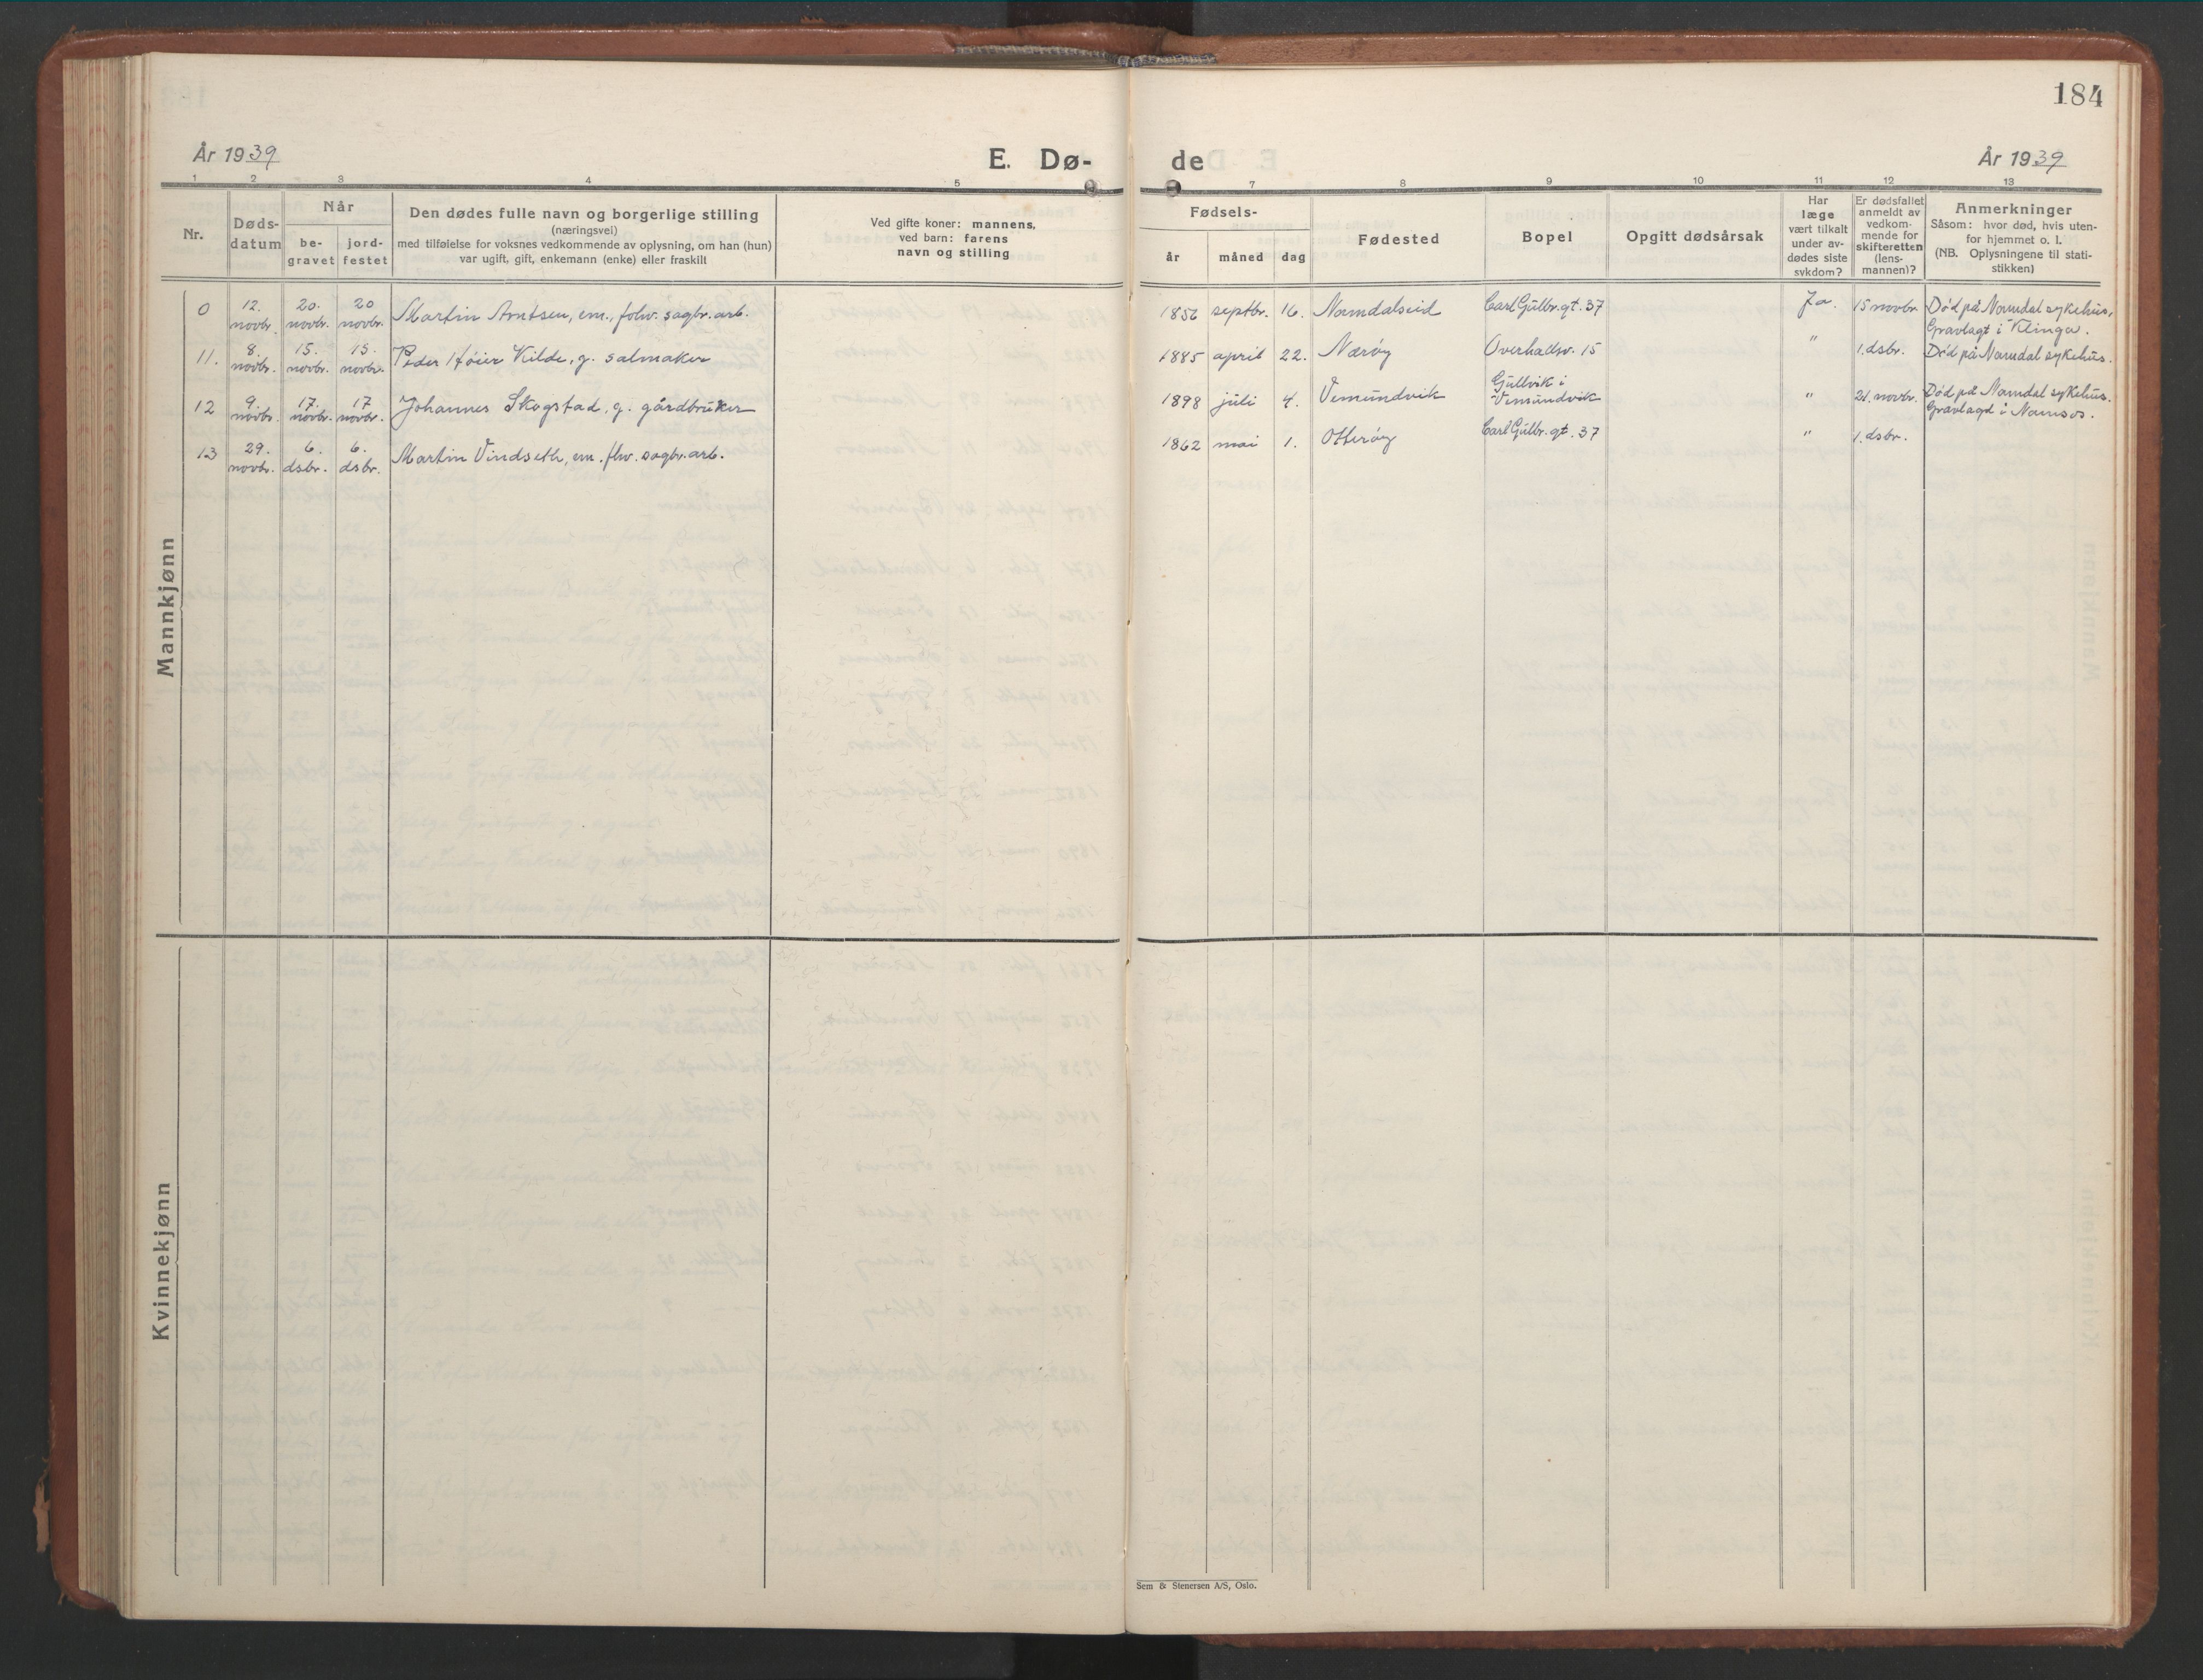 184
År 1939
E. Dø-
de
År 1939
1 2 3 4 5
7 8 9 10 11 12 13
Nr.
Døds-
datum
Når
be-
gravet
jord-
festet
Den dødes fulle navn og borgerlige stilling
(næringsvei)
med tilføielse for voksnes vedkommende av oplysning, om han (hun)
var ugift, gift, enkemann (enke) eller fraskilt
Ved gifte koner: mannens,
ved barn: farens
navn og stilling
Fødsels-
år
måned
dag
Fødested
Bopel
Opgitt dødsårsak
Har
læge
vært tilkalt
under av-
dødes siste
sykdom?
Er dødsfallet
anmeldt av
vedkom-
mende for
skifteretten
(lens-
mannen)?
Anmerkninger
Såsom: hvor død, hvis uten-
for hjemmet o. l.
(NB. Oplysningene til stati-
stikken)
Mannkjønn
0 12. novbr. 20. novbr. 20 novbr. Martin Arntsen, em., folw. sagbr. arb. 1856 septbr. 16. Namdalseid Carl Gulbr. gt. 37 Ja. 15 novbr. Død på Namdal sykehus.
Gravlagt i Klinga.
11. 8. novbr. 15. novbr. 15. novbr. Peder Høier Kilde, g. salmaker 1885 april 22. Nærøy Overhallsv. 15 " 1. dsbr. Død på Namdal sykehus.
12 9. novbr. 17. novbr. 17 novbr. Johannes Skogstad, g. gårdbruker 1898 juli 4. Vemundvik Gullvik i
Vemundvik " 21. novbr. Død på Namdal sykehus.
Gravlagd i Namsos.
13 29. novbr. 6. dsbr. 6. dsbr. Martin Vindseth, em. flw. sagbr. arb. 1862 mai 1. Otterøy Carl Gulbr. gt. 37 " 1. dsbr.
Kvinnekjønn
Sem & Stenersen A/S, Oslo.